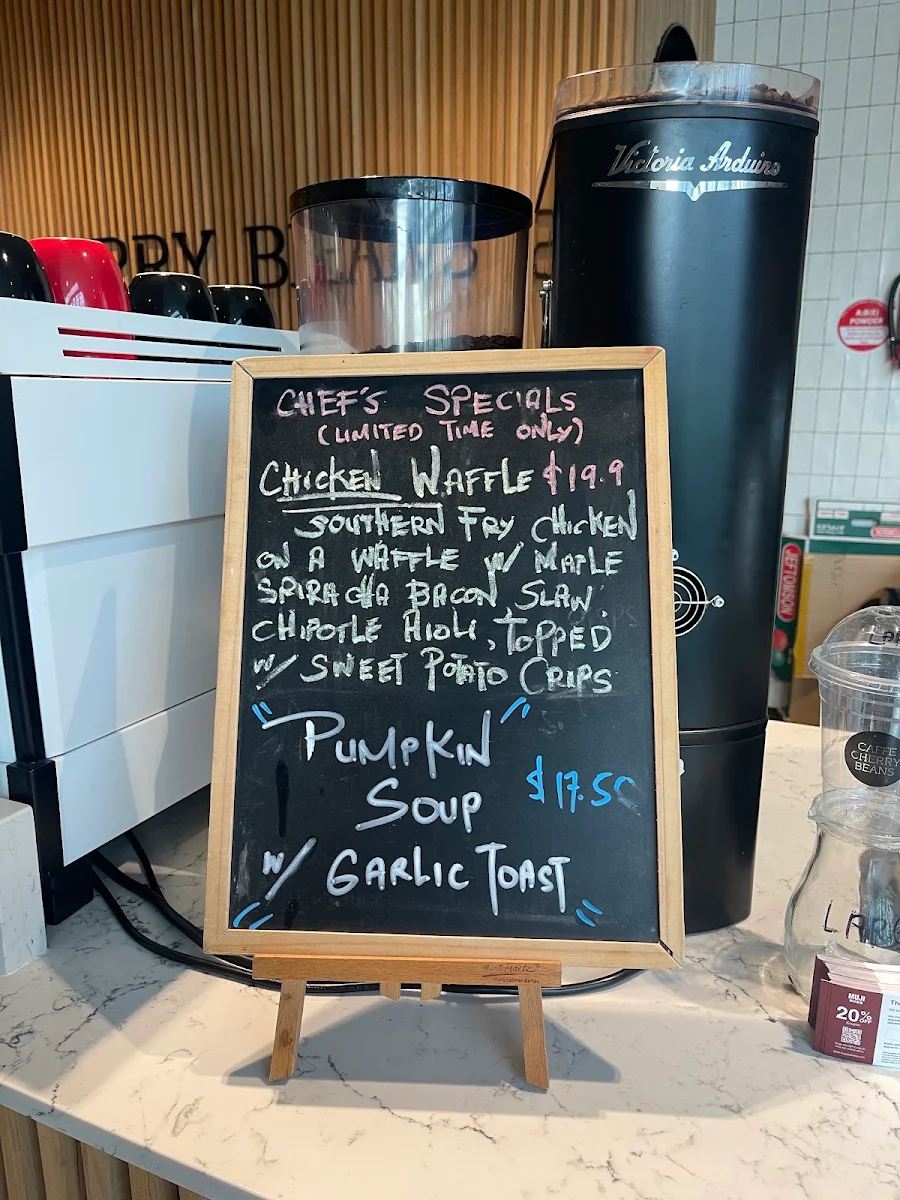 Victoria Arduino
RRY BEANS
CHEF'S SPECIALS
(LIMITED TIME ONLY)
CHICKEN WAFFLE $19.9
SOUTHERN FRY CHICKEN
ON A WAFFLE W/ MAPLE
SRIRACHA BACON SLAW,
CHIPOTLE AIOLI, TOPPED
W/ SWEET POTATO CRIPS
"PUMPKIN"
SOUP $17.50
W/ GARLIC TOAST
Mont Marte
JEFTOMSON
CAFFE
CHERRY
BEANS
LARG
MUJI
20% OFF